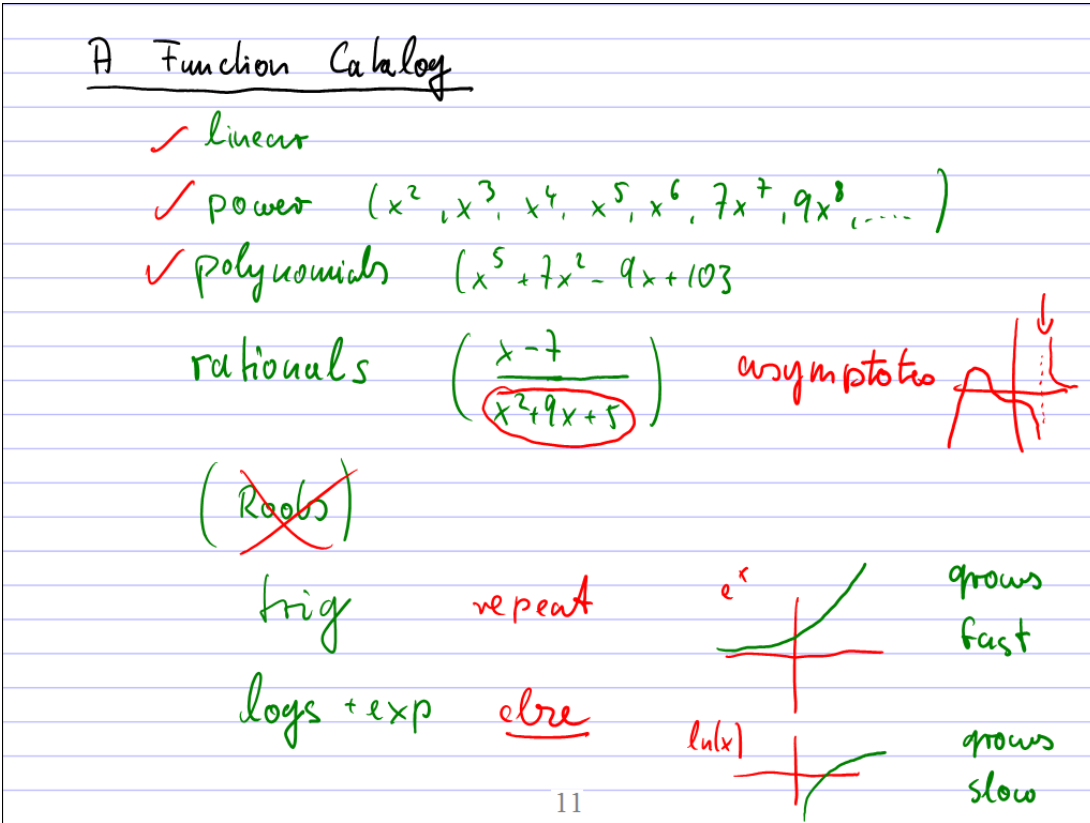 A Function Catalog
✓ linear
✓ power (x², x³, x⁴, x⁵, x⁶, 7x⁷, 9x⁸, .....)
✓ polynomials (x⁵ + 7x² - 9x + 103
rationals ( (x - 7) / (x² + 9x + 5) ) asymptotes
(Roots)
trig repeat eˣ grows fast
logs + exp else ln(x) grows slow
11